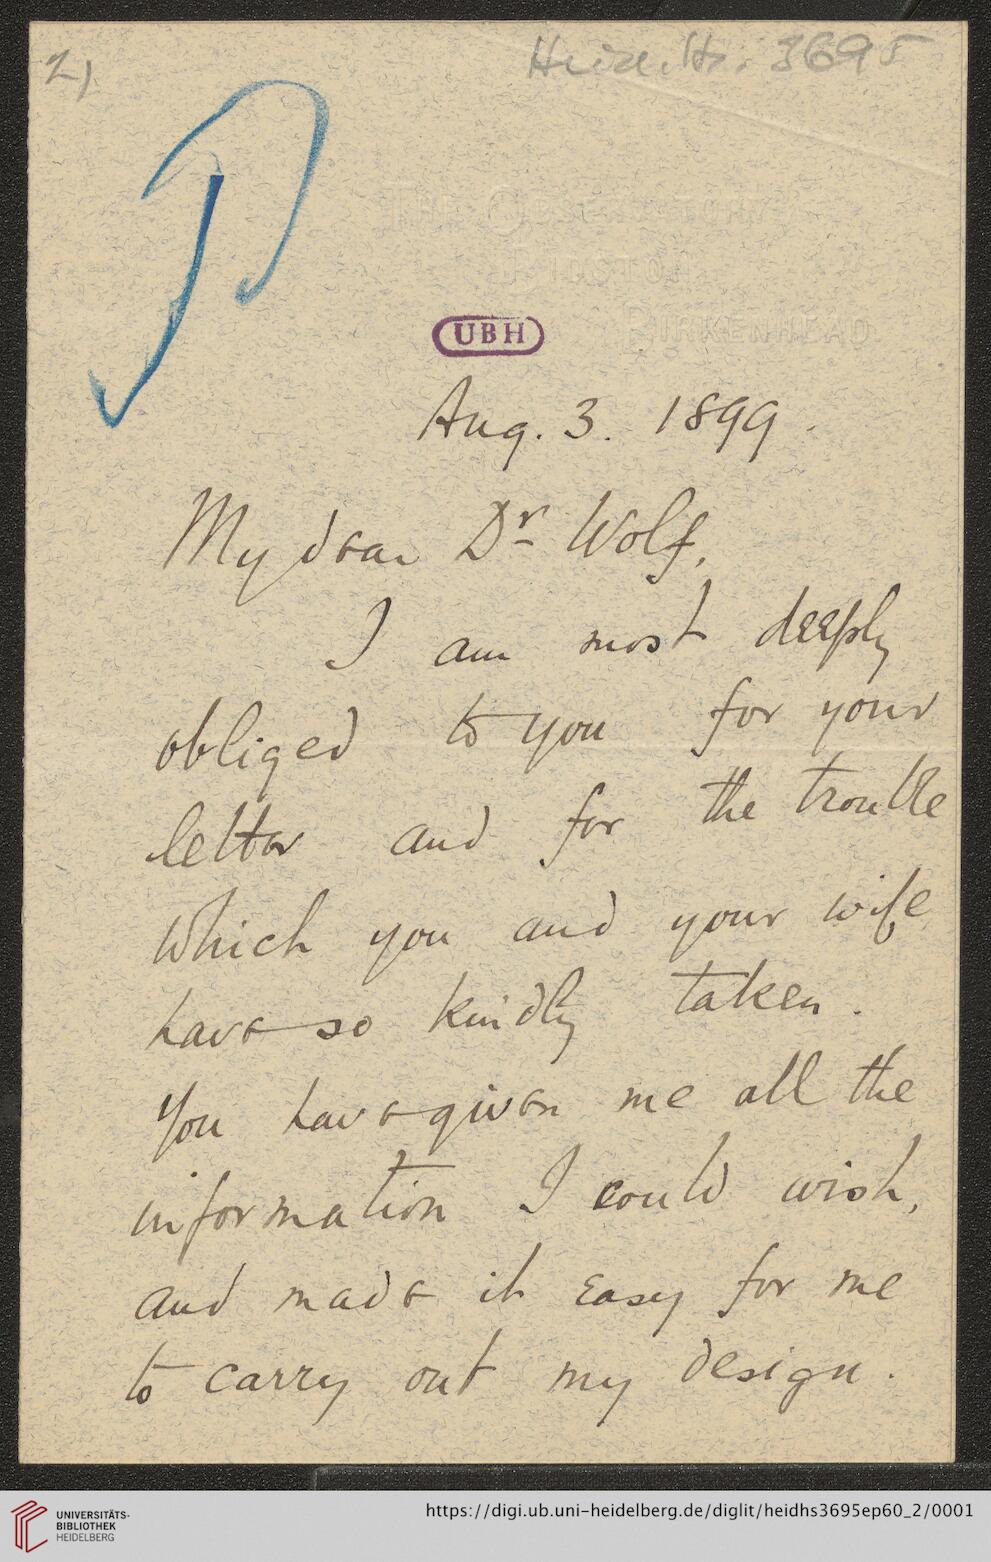 2)
Heid. Hs. 3695
THE OBSERVATORY
BIDSTON
BIRKENHEAD
UBH
Aug. 3. 1899.
My dear Dr Wolf,
I am most deeply
obliged to you for your
letter and for the trouble
which you and your wife
have so kindly taken.
You have given me all the
information I could wish,
and made it easy for me
to carry out my design.
UNIVERSITÄTS-
BIBLIOTHEK
HEIDELBERG
https://digi.ub.uni-heidelberg.de/diglit/heidhs3695ep60_2/0001